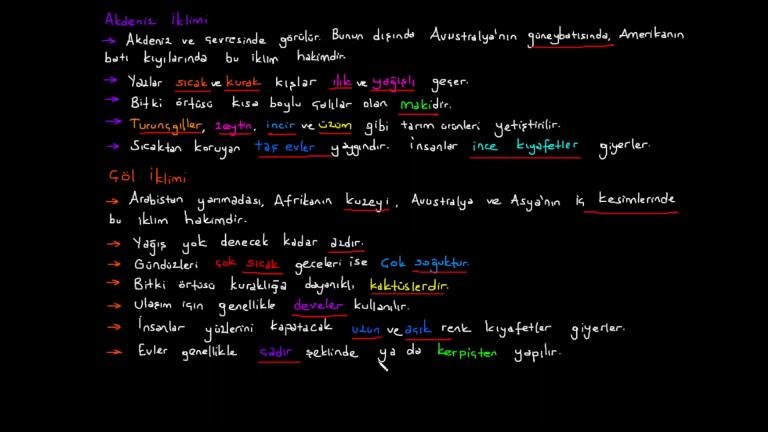 Akdeniz İklimi
→ Akdeniz ve çevresinde görülür. Bunun dışında Avustralya'nın güneybatısında, Amerikanın
batı kıyılarında bu iklim hakimdir.
→ Yazlar sıcak ve kurak kışlar ılık ve yağışlı geçer.
→ Bitki örtüsü kısa boylu çalılar olan makidir.
→ Turunçgiller, zeytin, incir ve üzüm gibi tarım ürünleri yetiştirilir.
→ Sıcaktan koruyan taş evler yaygındır. İnsanlar ince kıyafetler giyerler.
Çöl İklimi
→ Arabistan yarımadası, Afrikanın kuzeyi, Avustralya ve Asya'nın iç kesimlerinde
bu iklim hakimdir.
→ Yağış yok denecek kadar azdır.
→ Gündüzleri çok sıcak geceleri ise çok soğuktur.
→ Bitki örtüsü kuraklığa dayanıklı kaktüslerdir.
→ Ulaşım için genellikle develer kullanılır.
→ İnsanlar yüzlerini kapatacak uzun ve açık renk kıyafetler giyerler.
→ Evler genellikle çadır şeklinde ya da kerpiçten yapılır.